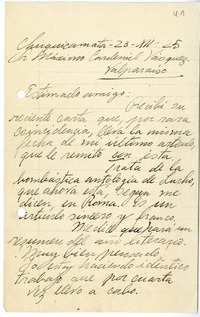 Chuquicamata - 23 - XII - 25
Sr Máximo Cardemil Vásquez.
Valparaíso
Estimado amigo:
Recibí su
reciente carta que, por rara
coincidencia, lleva la misma
fecha de mi último artículo,
que le remito con ésta.
Trata de la
bombástica antología de Lucho,
que ahora está, según me
dicen, en Roma. Es un
artículo sincero y franco.
Me dice que hará un
resumen del año literario.
Muy bien pensado.
Yo estoy haciendo idéntico
trabajo que por cuarta
vez llevo a cabo.